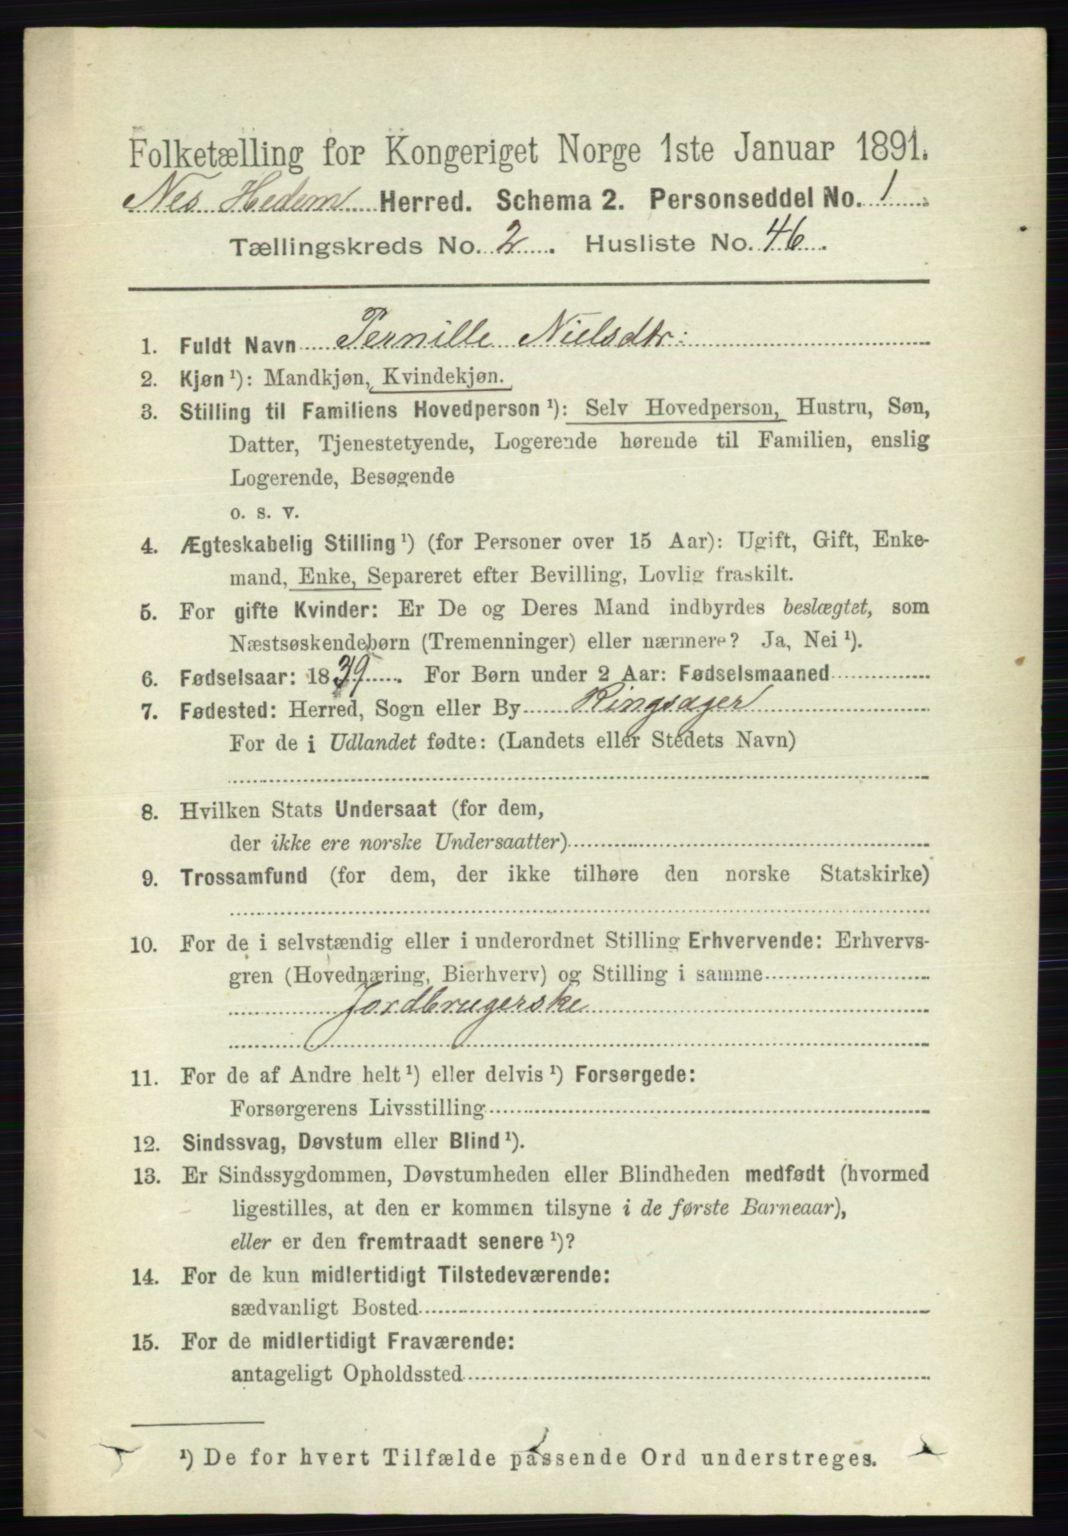 Folketælling for Kongeriget Norge 1ste Januar 1891.
Nes Hedem Herred. Schema 2. Personseddel No. 1
Tællingskreds No. 2. Husliste No. 46.
1. Fuldt Navn Pernille Nielsdtr:
2. Kjøn¹): Mandkjøn, Kvindekjøn.
3. Stilling til Familiens Hovedperson¹): Selv Hovedperson, Hustru, Søn,
Datter, Tjenestetyende, Logerende hørende til Familien, enslig
Logerende, Besøgende
o. s. v.
4. Ægteskabelig Stilling¹) (for Personer over 15 Aar): Ugift, Gift, Enke-
mand, Enke, Separeret efter Bevilling, Lovlig fraskilt.
5. For gifte Kvinder: Er De og Deres Mand indbyrdes beslægtet, som
Næstsøskendebørn (Tremenninger) eller nærmere? Ja, Nei¹).
6. Fødselsaar: 1839. For Børn under 2 Aar: Fødselsmaaned
7. Fødested: Herred, Sogn eller By Ringsager
For de i Udlandet fødte: (Landets eller Stedets Navn)
8. Hvilken Stats Undersaat (for dem,
der ikke ere norske Undersaatter)
9. Trossamfund (for dem, der ikke tilhøre den norske Statskirke)
10. For de i selvstændig eller i underordnet Stilling Erhvervende: Erhvervs-
gren (Hovednæring, Bierhverv) og Stilling i samme
Jordbrugerske
11. For de af Andre helt¹) eller delvis¹) Forsørgede:
Forsørgerens Livsstilling
12. Sindssvag, Døvstum eller Blind¹).
13. Er Sindssygdommen, Døvstumheden eller Blindheden medfødt (hvormed
ligestilles, at den er kommen tilsyne i de første Barneaar),
eller er den fremtraadt senere¹)?
14. For de kun midlertidigt Tilstedeværende:
sædvanligt Bosted
15. For de midlertidigt Fraværende:
antageligt Opholdssted
¹) De for hvert Tilfælde passende Ord understreges.